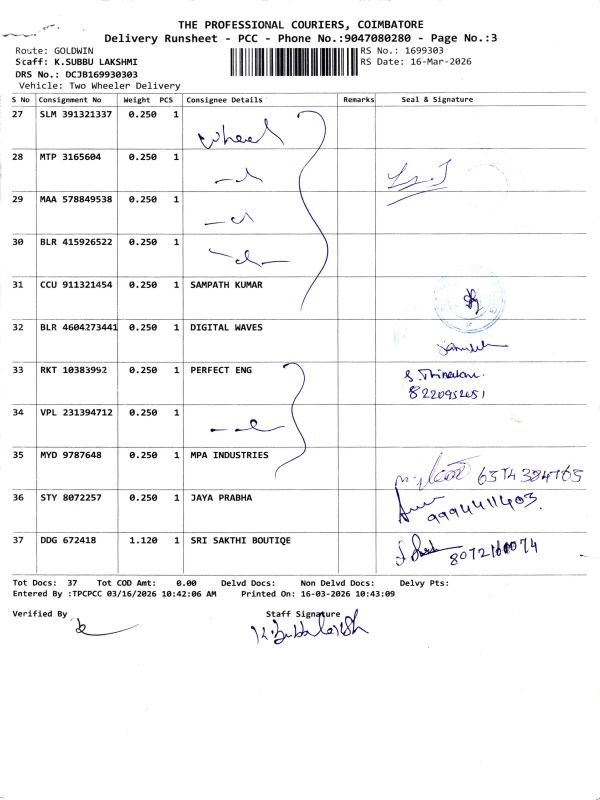 THE PROFESSIONAL COURIERS, COIMBATORE
Delivery Runsheet - PCC - Phone No.:9047080280 - Page No.:3
Route: GOLDWIN RS No.: 1699303
Scaff: K.SUBBU LAKSHMI RS Date: 16-Mar-2026
DRS No.: DCJB169930303
Vehicle: Two Wheeler Delivery
S No Consignment No Weight PCS Consignee Details Remarks Seal & Signature
27 SLM 391321337 0.250 1
28 MTP 3165604 0.250 1
29 MAA 578849538 0.250 1
30 BLR 415926522 0.250 1
31 CCU 911321454 0.250 1 SAMPATH KUMAR
32 BLR 4604273441 0.250 1 DIGITAL WAVES
33 RKT 10383992 0.250 1 PERFECT ENG
34 VPL 231394712 0.250 1
35 MYD 9787648 0.250 1 MPA INDUSTRIES
36 STY 8072257 0.250 1 JAYA PRABHA
9994411403
37 DDG 672418 1.120 1 SRI SAKTHI BOUTIQE
Tot Docs: 37 Tot COD Amt: 0.00 Delvd Docs: Non Delvd Docs: Delvy Pts:
Entered By :TPCPCC 03/16/2026 10:42:06 AM Printed On: 16-03-2026 10:43:09
Verified By Staff Signature